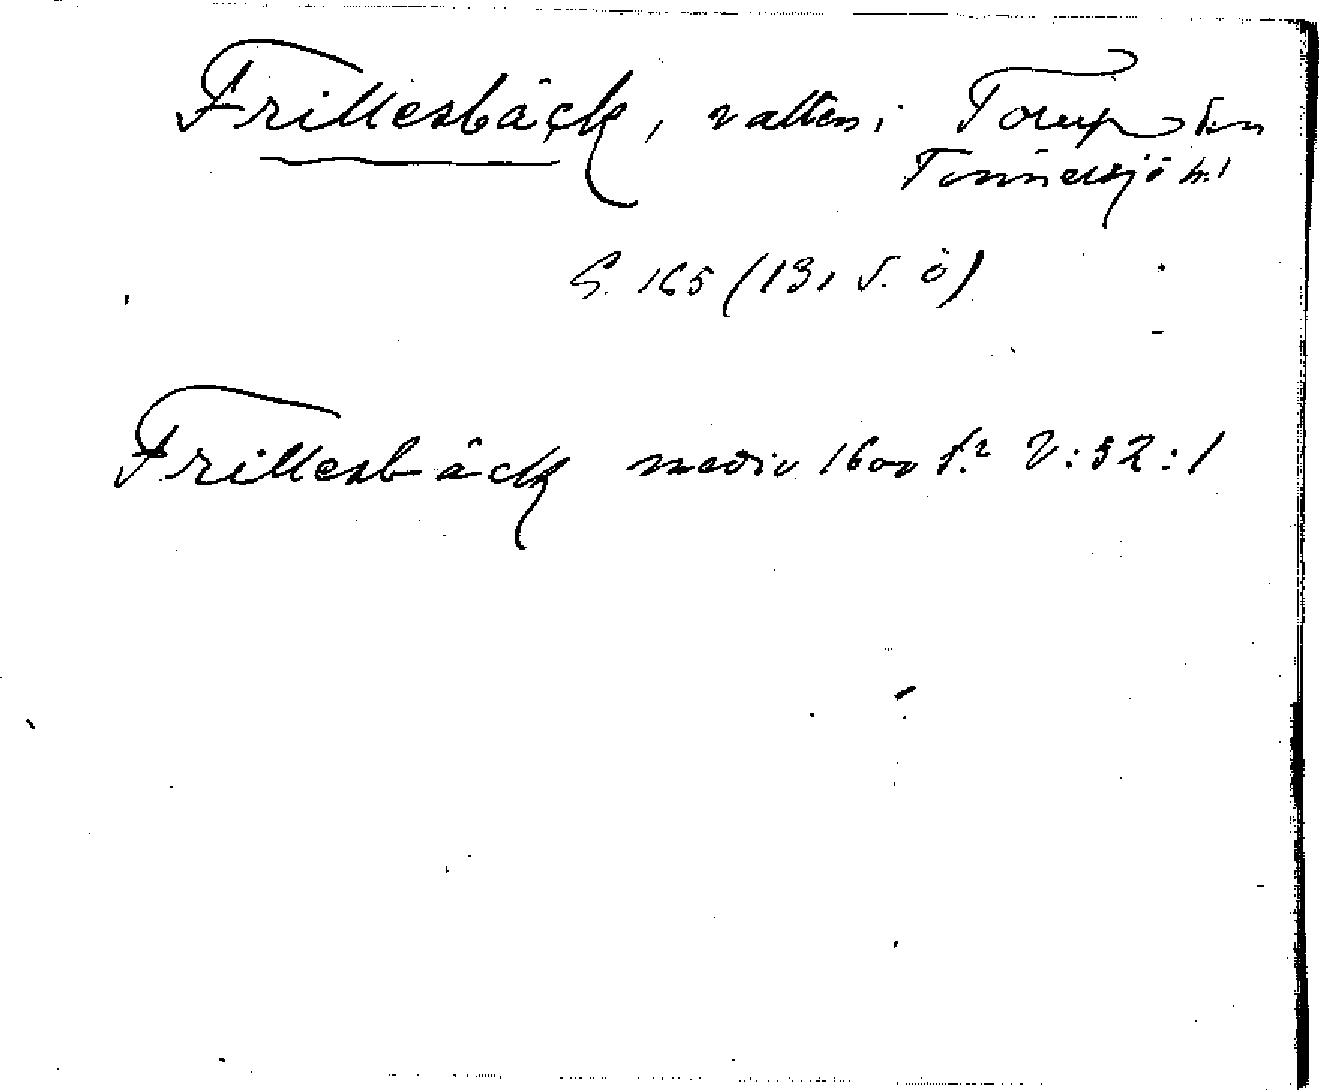 Frillesbäck, vatten i Torup sn
Tönnersjö hd
G. 165 (131 S. ö)
Frillesbäck medio 1600 f.² V:52:1